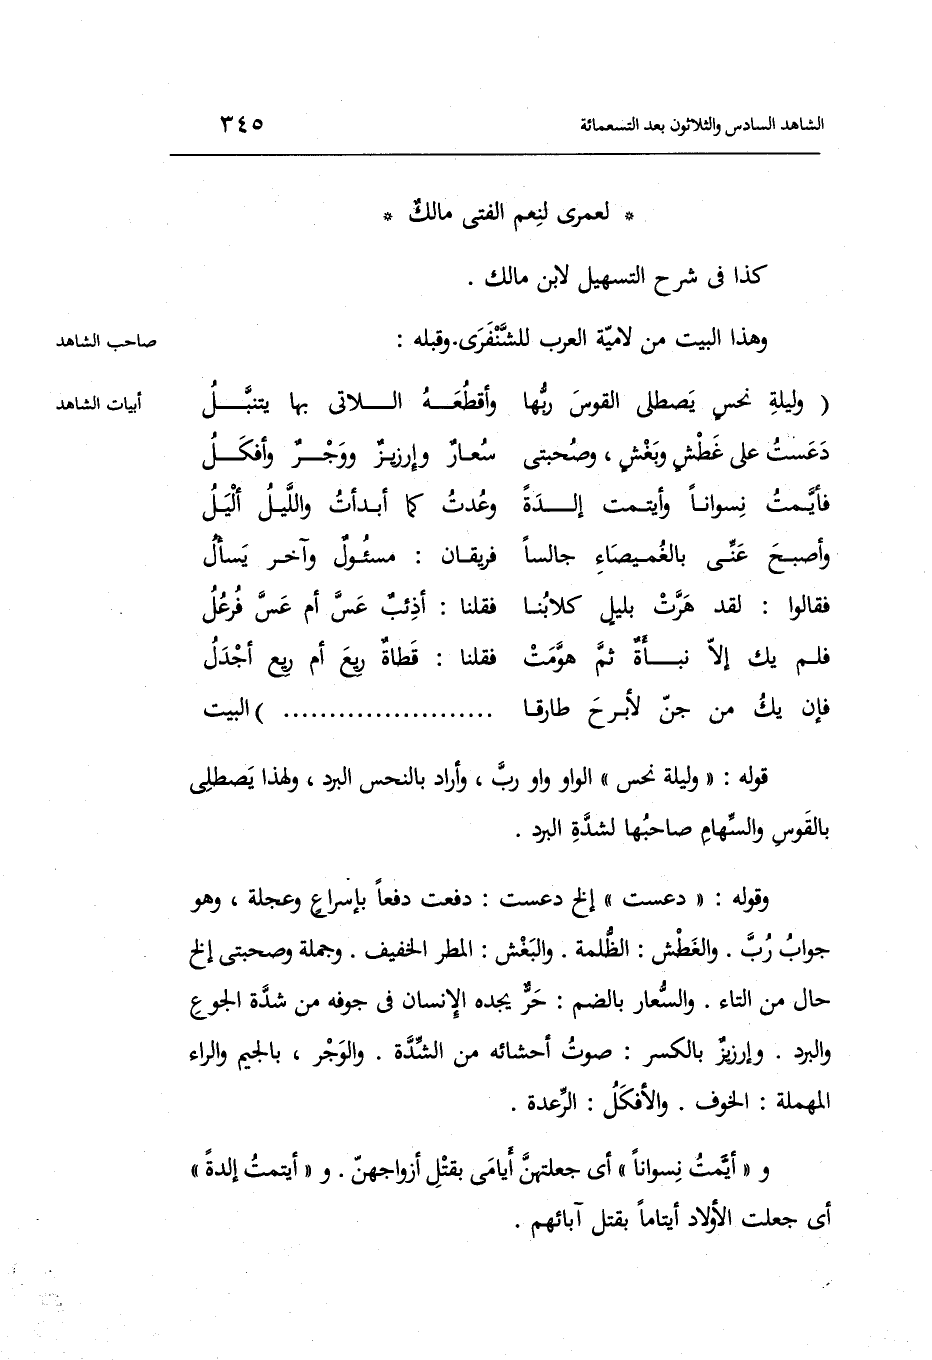 الشاهد السادس والثلاثون بعد التسعمائة ٣٤٥
* لعمرى لنِعم الفتى مالكٌ *
كذا فى شرح التسهيل لابن مالك .
وهذا البيت من لاميّة العرب للشَّنْفَرَى. وقبله :
صاحب الشاهد
( وليلةِ نحسٍ يَصطلى القوسَ ربُّها وأقطُعَــهُ الــلاتى بها يتنبَّــلُ
أبيات الشاهد
دَعَستُ على غَطْشٍ وبَغْشٍ ، وصُحبتى سُعـارٌ وإرزيـزٌ ووَجْـرٌ وأفكَـلُ
فأيَّمتُ نِسوانـاً وأيتمت إلــدَةً وعُدتُ كما أبدأتُ واللَّيلُ ألْيَلُ
وأصبحَ عَنِّى بالغُميصَاءِ جالساً فريقـان : مسئُولٌ وآخـر يَسألُ
فقالوا : لقد هَرَّتْ بليلٍ كلابُنـا فقلنا : أذِئبٌ عَسَّ أم عَسَّ فُرعُلُ
فلـم يك إلاّ نبـأةٌ ثمَّ هوَّمَتْ فقلنا : قَطاةٌ رِيعَ أم ريع أجْدَلُ
فإن يكُ من جنّ لأبرحَ طارقـا ...................... ) البيت
قوله : « وليلة نحس » الواو واو ربَّ ، وأراد بالنحس البرد ، ولهذا يَصطلِى
بالقَوسِ والسِّهامِ صاحبُها لشدَّةِ البرد .
وقوله : « دعست » إلخ دعست : دفعت دفعاً بإسراعٍ وعجلة ، وهو
جوابُ رُبَّ . والغَطْش : الظُّلمة . والبَغْش : المطر الخفيف . وجملة وصحبتى إلخ
حال من التاء . والسُّعار بالضم : حَرٌّ يجده الإنسان فى جوفه من شدَّة الجوع
والبرد . وإرزيزٌ بالكسر : صوتُ أحشائه من الشِّدَّة . والوَجْر ، بالجيم والراء
المهملة : الخوف . والأفكَلُ : الرِّعدة .
و « أيَّمتُ نِسواناً » أى جعلتهنَّ أيامَى بقتْلِ أزواجهنّ . و « أيتمتُ إلدةً »
أى جعلت الأولاد أيتاماً بقتل آبائهم .